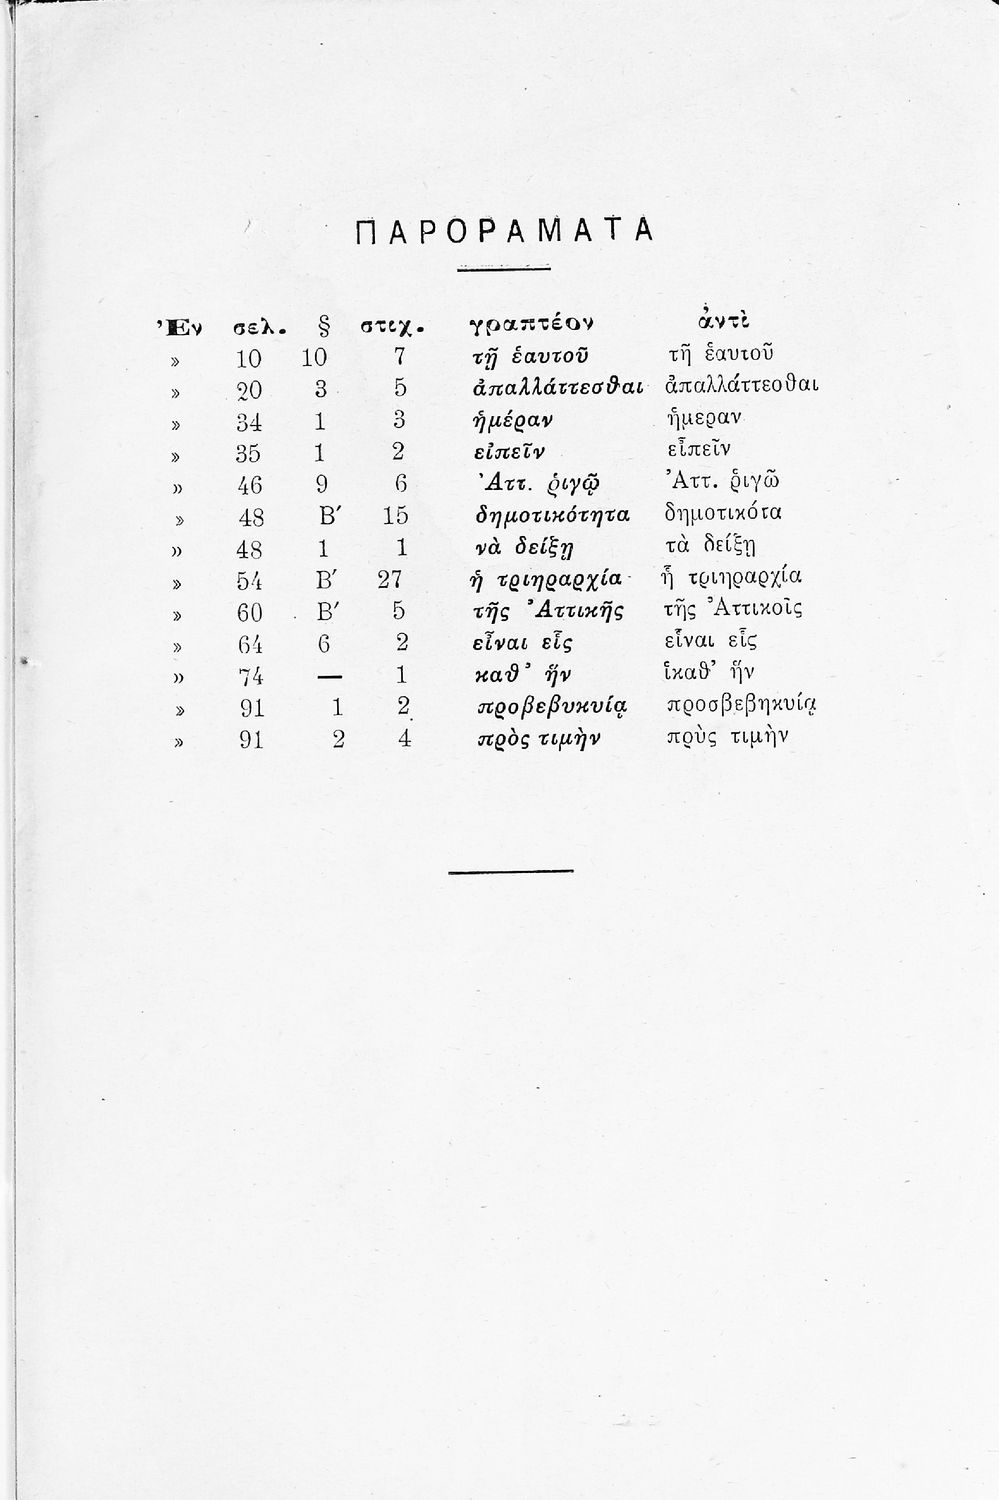 ΠΑΡΟΡΑΜΑΤΑ
Ἐν σελ. § στιχ. γραπτέον ἀντὶ
» 10 10 7 τῇ ἑαυτοῦ τῆ ἑαυτοῦ
» 20 3 5 ἀπαλλάττεσθαι ἀπαλλάττεοθαι
» 34 1 3 ἡμέραν ἡμεραν
» 35 1 2 εἰπεῖν εἶπεῖν
» 46 9 6 Ἀττ. ῥιγῷ Ἀττ. ῥιγῶ
» 48 Β′ 15 δημοτικότητα δημοτικότα
» 48 1 1 νὰ δείξῃ τὰ δείξῃ
» 54 Β′ 27 ἡ τριηραρχία ἦ τριηραρχία
» 60 Β′ 5 τῆς Ἀττικῆς τῆς Ἀττικοῖς
» 64 6 2 εἶναι εἷς εἶναι εἶς
» 74 — 1 καθ’ ἥν ἱκαθ’ ἥν
» 91 1 2 προβεβυκυίᾳ προσβεβηκυίᾳ
» 91 2 4 πρὸς τιμὴν πρὺς τιμὴν